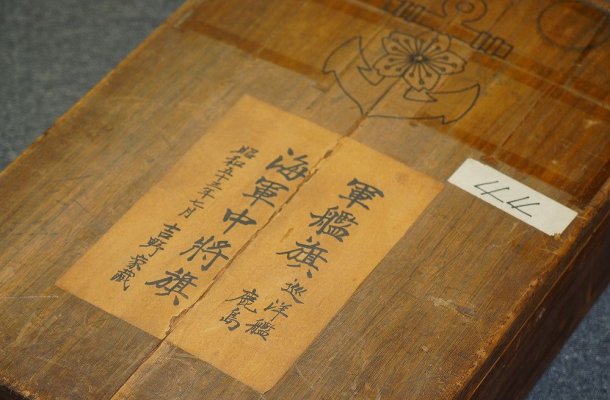 軍艦旗
巡洋艦
鹿島
海軍中將旗
昭和五十三年七月 吉野
44